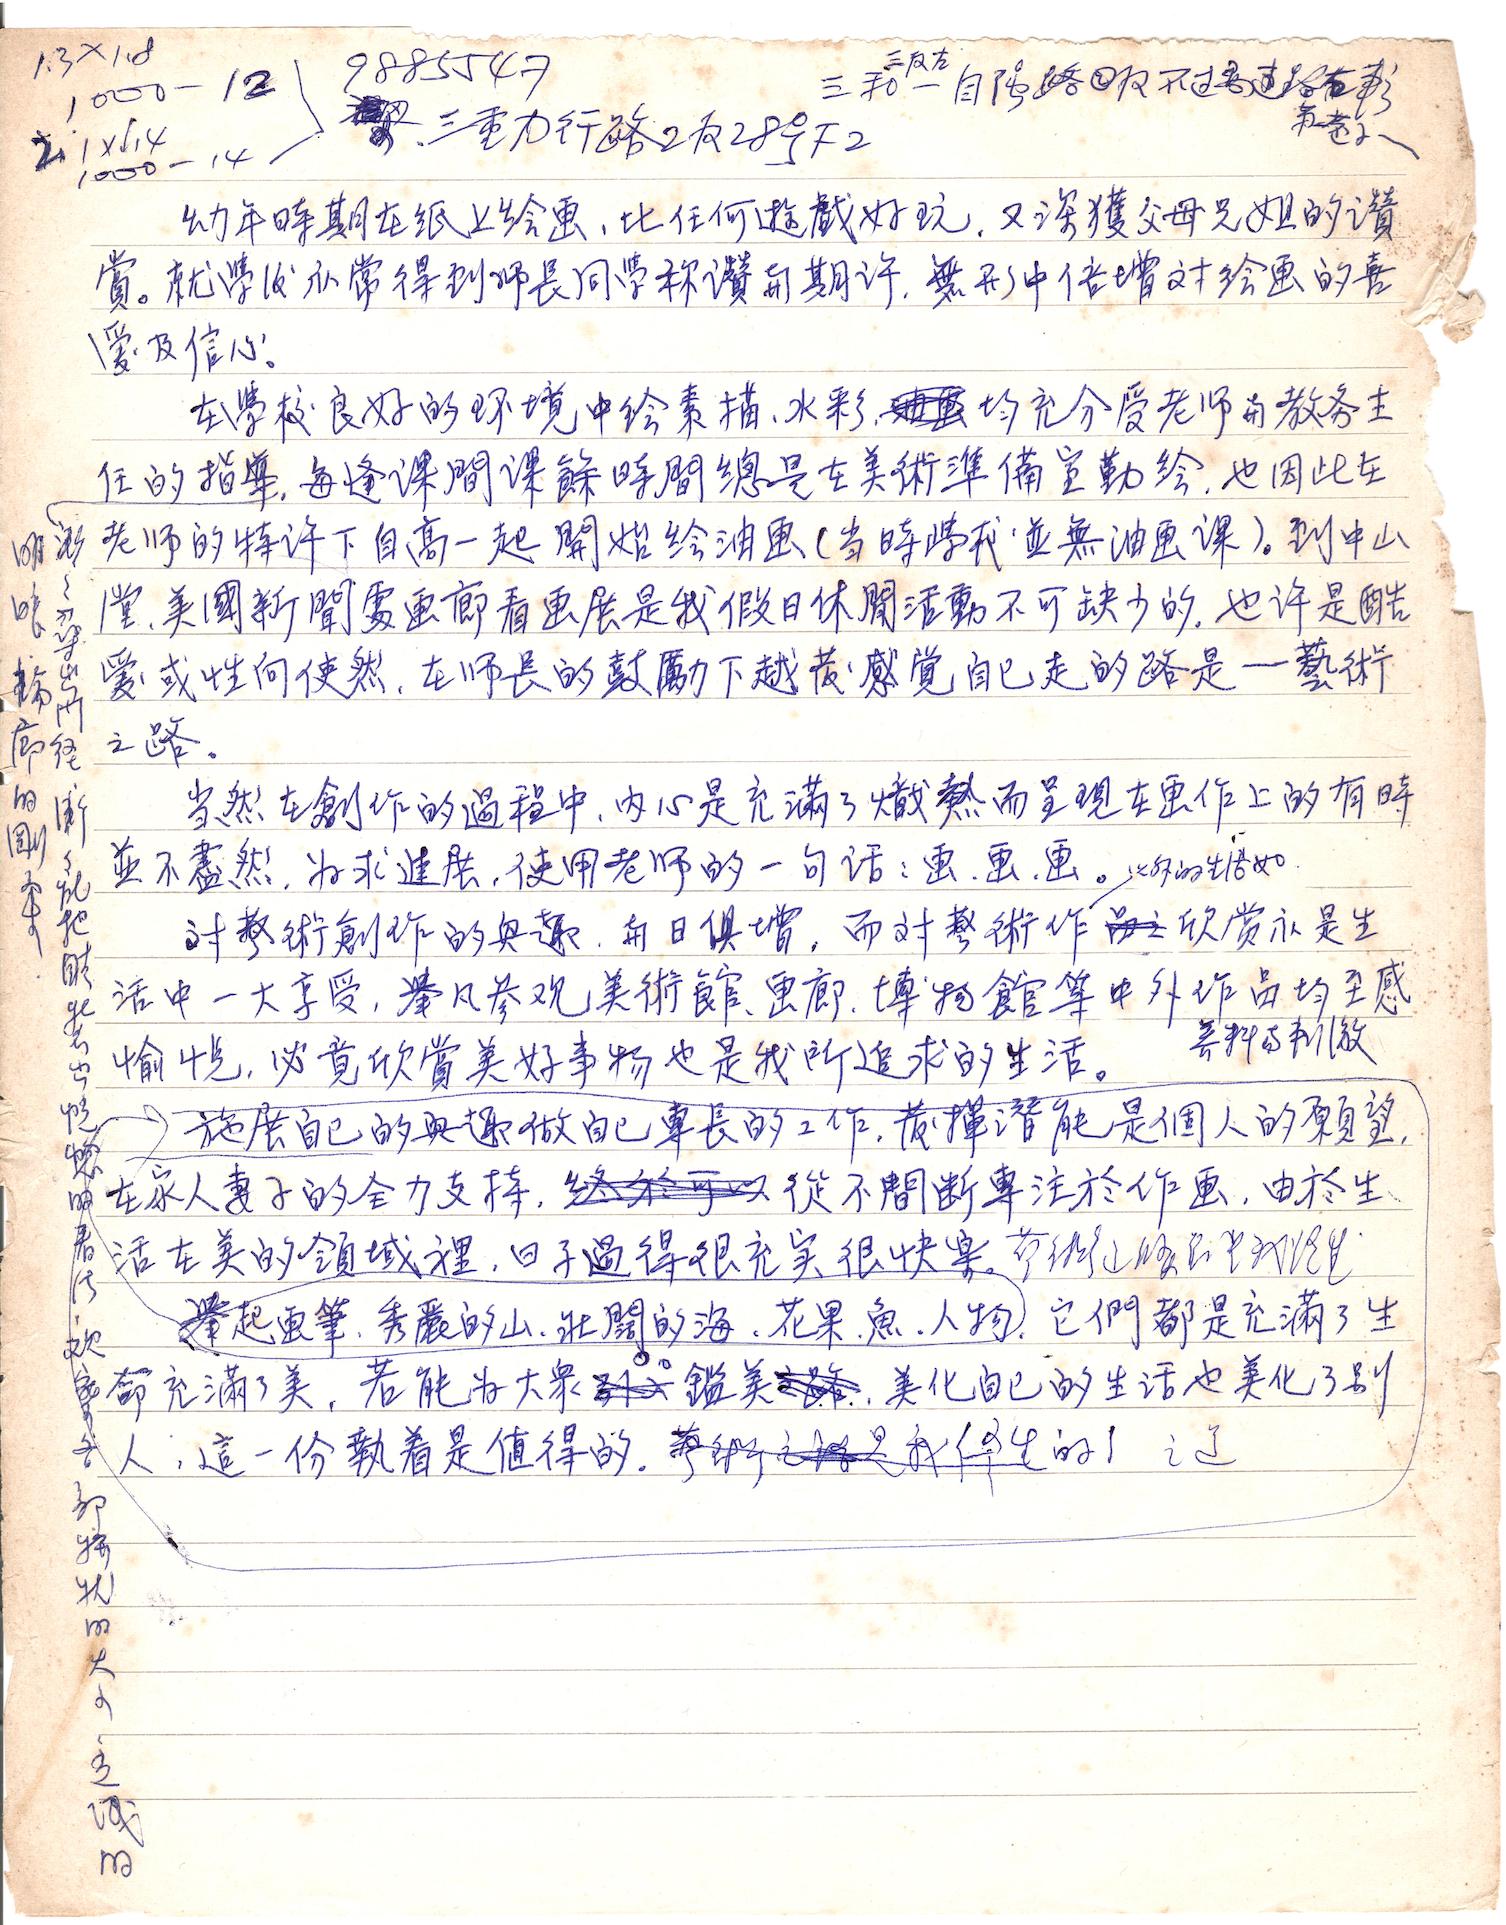 1.3×1.8
1000－12
2. 1×1.4
1000－14
9885547
三重力行路2段28号下2
三和一自强路
幼年時期在紙上绘画，比任何遊戲好玩，又深獲父母兄姐的讚
賞。就學後亦常得到师長同學称讚與期许，無形中倍增对绘画的喜
愛及信心。
在學校良好的环境中绘素描、水彩，均充分受老师與教务主
任的指導，每逢课間课餘時間總是在美術準備室勤绘，也因此在
老师的特许下自高一起開始绘油画（当時學校並無油画课）。到中山
堂、美國新聞處画廊看画展是我假日休閒活動不可缺少的，也许是酷
愛或性向使然，在师長的鼓勵下越發感覚自己走的路是一藝術
之路。
当然在創作的過程中，内心是充滿了熾熱而呈現在画作上的有時
並不盡然，为求進展，使用老师的一句话：画、画、画。
对藝術創作的興趣，與日俱增，而对藝術作品之欣赏亦是生
活中一大享受，舉凡参观美術館、画廊、博物館等中外作品均至感
愉悦，必竟欣賞美好事物也是我所追求的生活。
施展自己的興趣做自己專長的工作，發揮潛能是個人的願望，
在家人妻子的全力支持，終於可以從不間断專注於作画，由於生
活在美的領域裡，日子過得很充实很快樂。
舉起画筆，秀麗的山、壯闊的海、花果、魚、人物，它們都是充滿了生
都充滿了美，若能为大眾鑑美之路，美化自己的生活也美化了别
人，這一份執着是值得的。